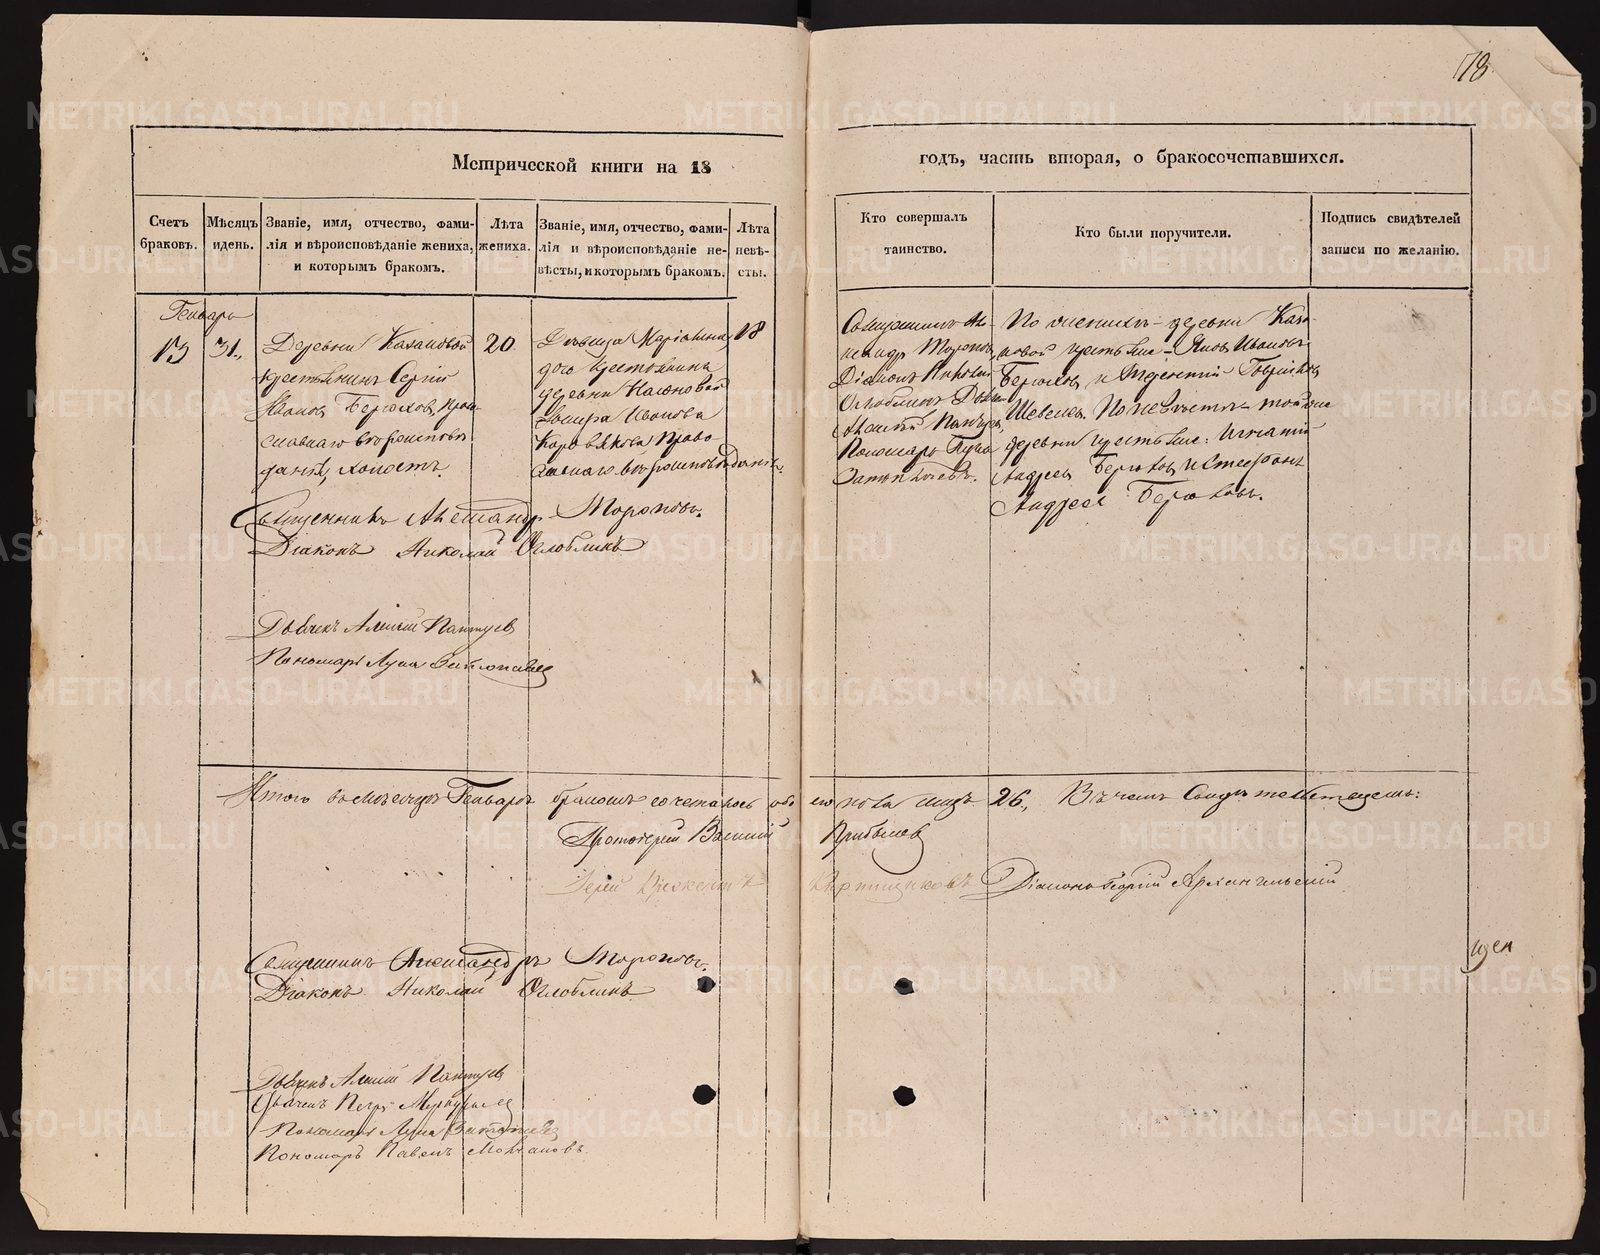 78
Метрической книги на 18
годъ, часть вторая, о бракосочетавшихся.
Счетъ браковъ.
Мѣсяцъ и день.
Званіе, имя, отчество, фами-
лія и вѣроисповѣданіе жениха,
и которымъ бракомъ.
Лѣта
жениха.
Званіе, имя, отчество, фами-
лія и вѣроисповѣданіе не-
вѣсты, и которымъ бракомъ.
Лѣта
невѣ-
сты.
Кто совершалъ
таинство.
Кто были поручители.
Подпись свидѣтелей
записи по желанію.
Генварь
13
31.
Деревни Казаковой
крестьянинъ Сергій
Ивановъ Берюховъ, Право-
славнаго вѣроисповѣ-
данія, холостъ.
20.
Дѣвица
крестьянина
деревни
Иванова
Коровякова, Право
славнаго вѣроисповѣданія.
18
Священникъ Але-
ксандр Торопов,
Діаконъ Николай
Оглоблинъ
Алексѣй Пантуев,
Пономарь Лука
По женихѣ деревни Каза-
ковой крестьяне: Яковъ Ивановъ
Берюхов, и
Шевелев. По невѣстѣ той же
деревни крестьяне: Игнатій
Андреев Берюхов, и Стефанъ
Андреев Берюховъ.
Священникъ Александр Тороповъ.
Діаконъ Николай Оглоблинъ
Дьячекъ Алексѣй Пантуев
Пономарь Лука
Итого въ мѣсяцѣ Генварѣ бракомъ сочеталось обоего пола лицъ 26., Въ чемъ Свидѣтельствуемъ:
Протоіерей Василий Прибылев
Іерей
Діаконъ Георгій Архангельский
Священникъ Александръ Тороповъ.
Діаконъ Николай Оглоблинъ
Дьячекъ Алексѣй Пантуев
Дьячекъ Петръ
Пономарь Лука
Пономарь Павелъ Молчановъ.
METRIKI.GASO-URAL.RU